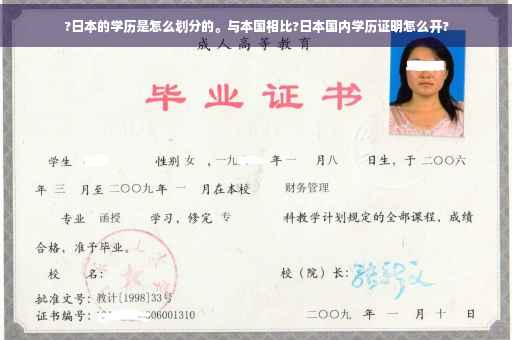 ?日本的学历是怎么划分的。与本国相比?日本国内学历证明怎么开?
成人高等教育
毕业证书
学生 性别 女 , 一九 年 一 月 八 日生，于 二〇〇六
年 三 月至 二〇〇九 年 一 月在本校 财务管理
专业 函授 学习，修完 专 科教学计划规定的全部课程，成绩
合格，准予毕业。
校 名： 校（院）长：
批准文号：教计[1998]33号
证书编号： 06001310 二〇〇九 年 一 月 十 日